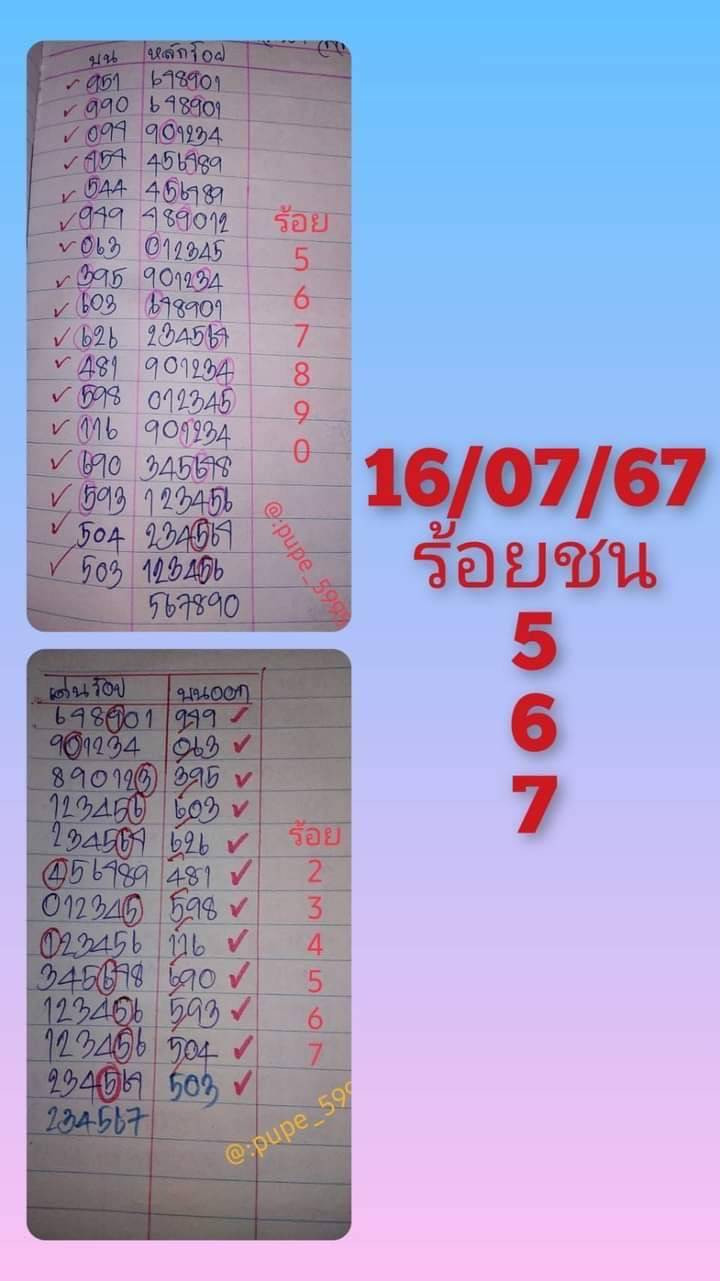 บน หลักร้อย
951 678901
990 678901
097 901234
757 456789
544 456789
979 789012
063 012345
395 901234
603 678901
626 234567
481 901234
598 012345
116 901234
690 345678
593 123456
504 234567
503 123456
567890
ร้อย
5
6
7
8
9
0
@:pupe_599
16/07/67
ร้อยชน
5
6
7
เด่นร้อย บนออก
678901 979
901234 063
890123 395
123456 603
234567 626
456789 481
012345 598
123456 116
345678 690
123456 593
123456 504
234567 503
234567
ร้อย
2
3
4
5
6
7
@:pupe_599